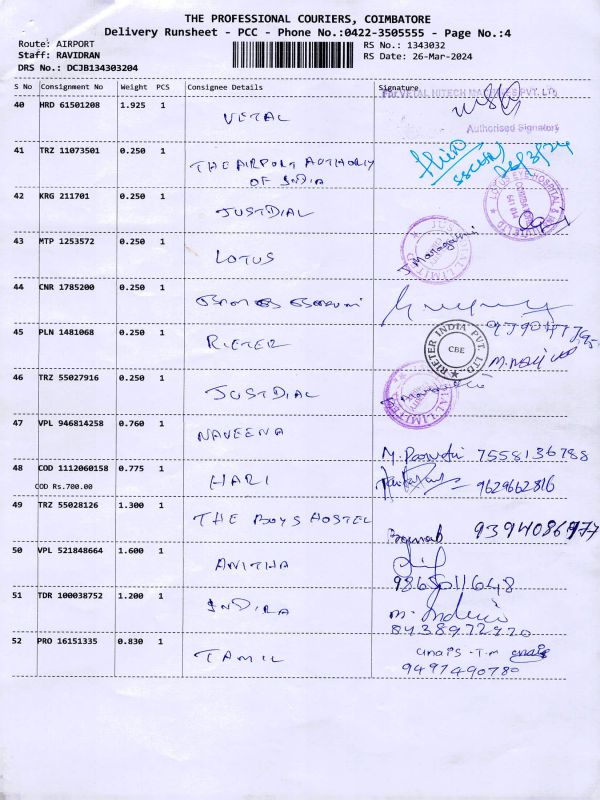 THE PROFESSIONAL COURIERS, COIMBATORE
Delivery Runsheet - PCC - Phone No.:0422-3505555 - Page No.:4
Route: AIRPORT
RS No.: 1343032
Staff: RAVIDRAN
RS Date: 26-Mar-2024
DRS No.: DCJB134303204
S No Consignment No Weight PCS Consignee Details Signature
For VETAL HITECH MACHINES PVT. LTD
40 HRD 61501208 1.925 1 VETAL
Authorised Signatory
41 TRZ 11073501 0.250 1 THE AIRPORT AUTHORITY
OF INDIA
26/3/24
42 KRG 211701 0.250 1 JUSTDIAL
LOTUS EYE HOSPITAL &
641 014
43 MTP 1253572 0.250 1 LOTUS
JUSTDIAL LIMITED
44 CNR 1785200 0.250 1
45 PLN 1481068 0.250 1 RIETER
RIETER INDIA PVT. LTD.
CBE
46 TRZ 55027916 0.250 1 JUSTDIAL
47 VPL 946814258 0.760 1 NAVEENA
7558136788
48 COD 1112060158 0.775 1 HARI
COD Rs.700.00
9629662816
49 TRZ 55028126 1.300 1 THE BOYS HOSTEL
9394086977
50 VPL 521848664 1.600 1 ANITHA
9865011648
51 TDR 100038752 1.200 1 INDIRA
8438972920
52 PRO 16151335 0.830 1 TAMIL
anais -T.M
9497490780